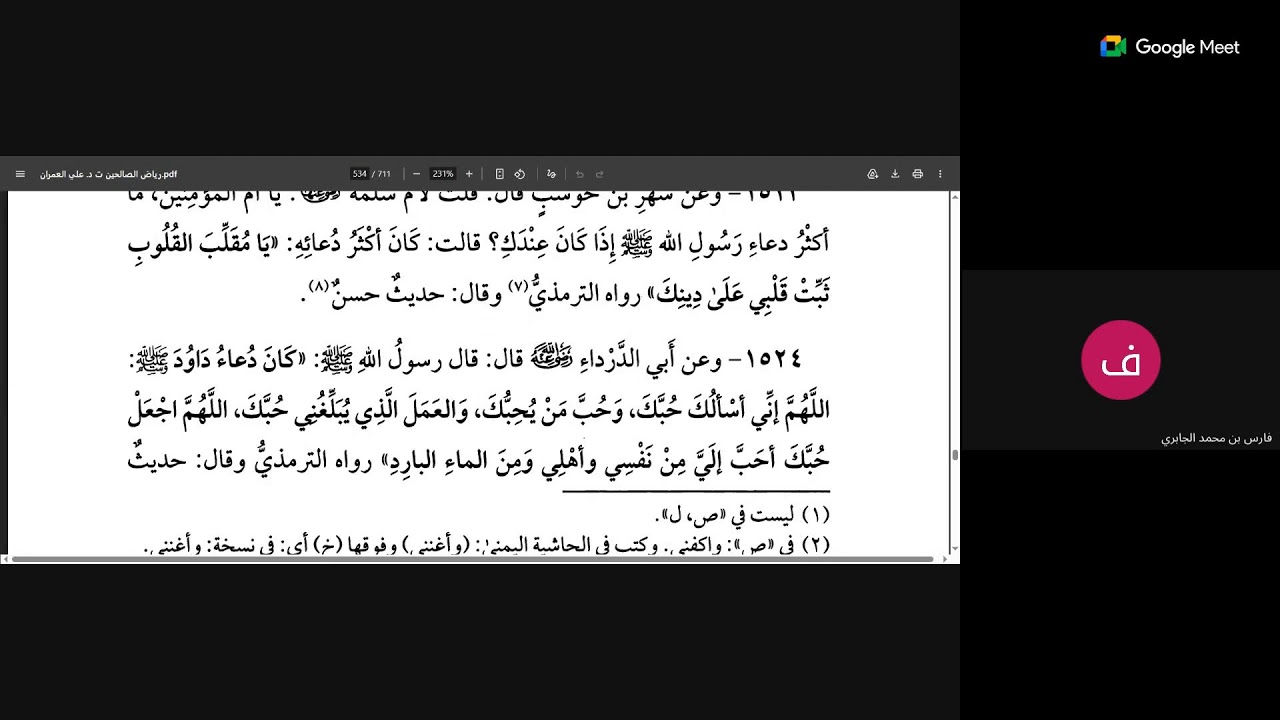 Google Meet
رياض الصالحين ت د. علي العمران.pdf
534 / 711
231%
وعن شهرِ بن حَوْشَبٍ قال: قلت لأم سلمة ﵂: يا أم المؤمنين، ما
أكثْرُ دعاءِ رَسُولِ الله ﷺ إِذَا كَانَ عِنْدَكِ؟ قالت: كَانَ أكْثَرُ دُعائِهِ: «يَا مُقَلِّبَ القُلُوبِ
ثَبِّتْ قَلْبِي عَلَىٰ دِينِكَ» رواه الترمذيُّ(٧) وقال: حديثٌ حسنٌ(٨).
١٥٢٤- وعن أَبي الدَّرْداءِ ﵁ قال: قال رسولُ اللهِ ﷺ: «كَانَ دُعاءُ دَاوُدَ ﷺ:
اللَّهُمَّ إنِّي أسْألُكَ حُبَّكَ، وَحُبَّ مَنْ يُحِبُّكَ، وَالعَمَلَ الَّذِي يُبَلِّغُنِي حُبَّكَ، اللَّهُمَّ اجْعَلْ
حُبَّكَ أحَبَّ إلَيَّ مِنْ نَفْسِي وأهْلِي وَمِنَ الماءِ البارِدِ» رواه الترمذيُّ وقال: حديثٌ
(١) ليست في «ص، ل».
(٢) في «ص»: واكفني. وكتب في الحاشية اليمنىٰ: (وأغنني) وفوقها (خ) أي: في نسخة: وأغنني.
ف
فارس بن محمد الجابري